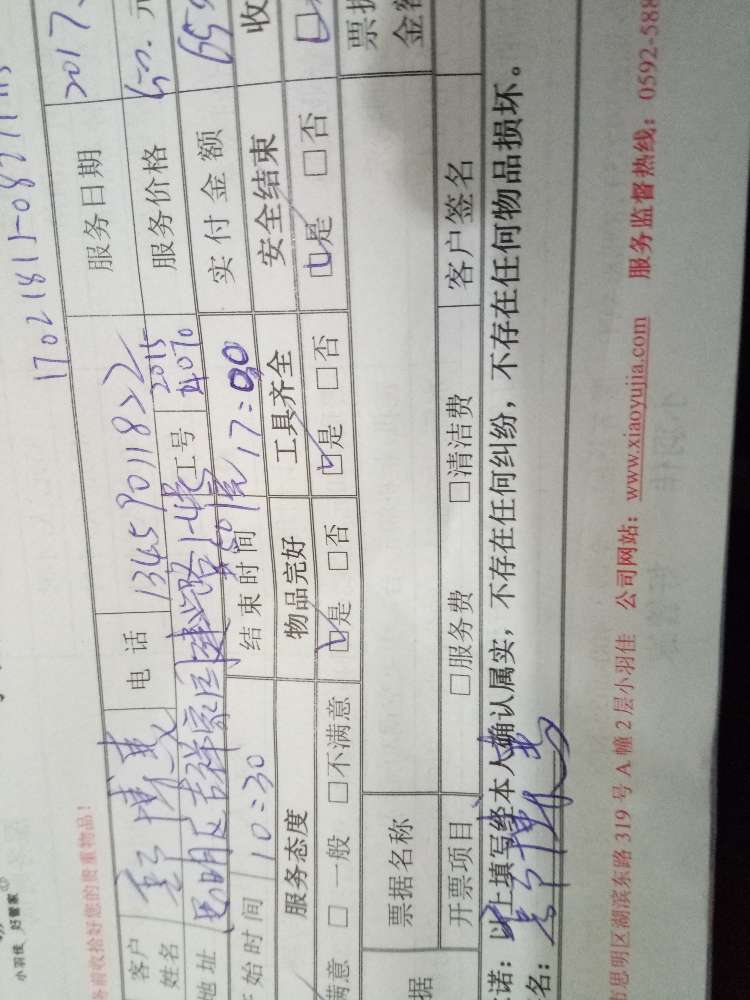 小羽佳 好管家
收拾好您的贵重物品!
17021811-0827
客户姓名 电话 13459011822 服务日期 2017.
地址 思明区吉祥家园 工号 服务价格
始时间 10:30 结束时间 17:00 实付金额
服务态度 物品完好 工具齐全 安全结束 收
满意 □一般 □不满意 □是 □否 □是 □否 □是 □否
据 票据名称 票据金额
开票项目 □服务费 □清洁费 客户签名
诺:以上填写经本人确认属实,不存在任何纠纷,不存在任何物品损坏。
名:
思明区湖滨东路 319 号 A 幢 2 层小羽佳 公司网站:www.xiaoyujia.com 服务监督热线:0592-588